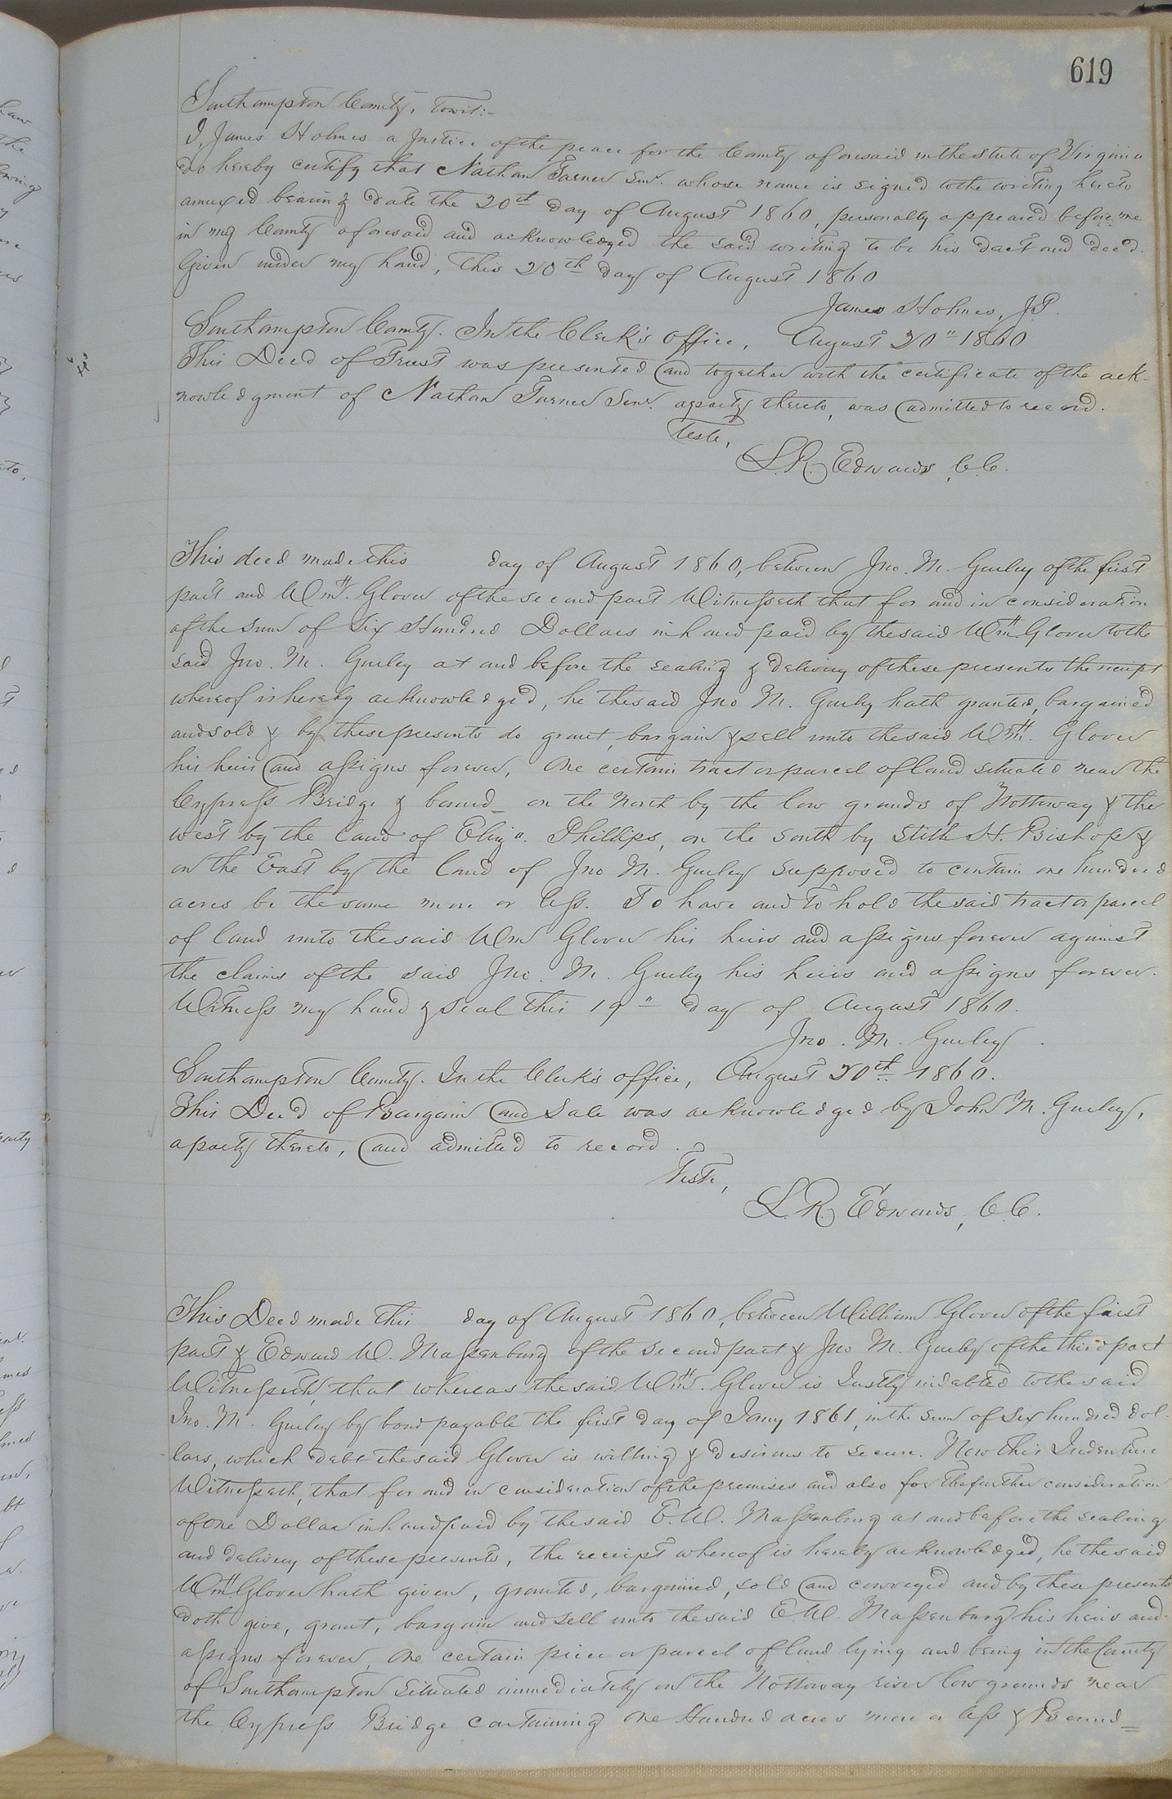 619
Southampton County, Towit:-
I, James Holmes a Justice of the peace for the County aforesaid in the state of Virginia
do hereby certify that Nathan Turner Senr. whose name is signed to the writing hereto
annexed bearing date the 20th day of August 1860, personally appeared before me
in my County aforesaid and acknowledged the said writing to be his act and deed.
Given under my hand, this 20th day of August 1860
James Holmes, J.P.
Southampton County. In the Clerk's office, August 20" 1860
This Deed of Trust was presented and together with the certificate of the ack-
nowledgment of Nathan Turner Senr. a party thereto, was admitted to record.
Teste,
L.R. Edwards, C.C.
This deed made this day of August 1860, between Jno. M. Gurley of the first
part and Wm. H. Glover of the second part Witnesseth that for and in consideration
of the sum of Six Hundred Dollars in hand paid by the said Wm. H. Glover to the
said Jno. M. Gurley at and before the sealing & delivery of these presents the receipt
whereof is hereby acknowledged, he the said Jno M. Gurley hath granted, bargained
and sold & by these presents do grant, bargain & sell unto the said Wm. H. Glover
his heirs and assigns forever, One certain tract or parcel of land situated near the
Cypress Bridge & bound_ on the North by the low grounds of Nottoway & the
West by the land of Eliza. Phillips, on the South by Stith H. Bishop &
on the East by the land of Jno M. Gurley supposed to contain one hundred
acres be the same more or less. To have and to hold the said tract or parcel
of land unto the said Wm Glover his heirs and assigns forever against
the claims of the said Jno. M. Gurley his heirs and assigns forever.
Witness my hand & seal this 19" day of August 1860.
Jno. M. Gurley.
Southampton County. In the Clerk's office, August 20th 1860.
This Deed of Bargain and Sale was acknowledged by John M. Gurley,
a party thereto, and admitted to record.
Teste,
L.R. Edwards, C.C.
This Deed made this day of August 1860, between William Glover of the first
part & Edward W. Massenburg of the second part & Jno M. Gurley of the third part
Witnesseth, that whereas the said Wm. H. Glover is Justly indebted to the said
Jno. M. Gurley by bond payable the first day of Jany 1861, in the sum of six hundred dol-
lars, which debt the said Glover is willing & desirous to secure. Now this Indenture
Witnesseth, that for and in consideration of the premises and also for the further consideration
of One Dollar in hand paid by the said E.W. Massenburg at and before the sealing
and delivery of these presents, the receipt whereof is hereby acknowledged, he the said
Wm. H. Glover hath given, granted, bargained, sold and conveyed and by these presents
doth give, grant, bargain and sell unto the said E.W. Massenburg his heirs and
assigns forever, One certain piece or parcel of land lying and being in the County
of Southampton situated immediately on the Nottoway river low grounds near
the Cypress Bridge containing One Hundred acres more or less & Bound=